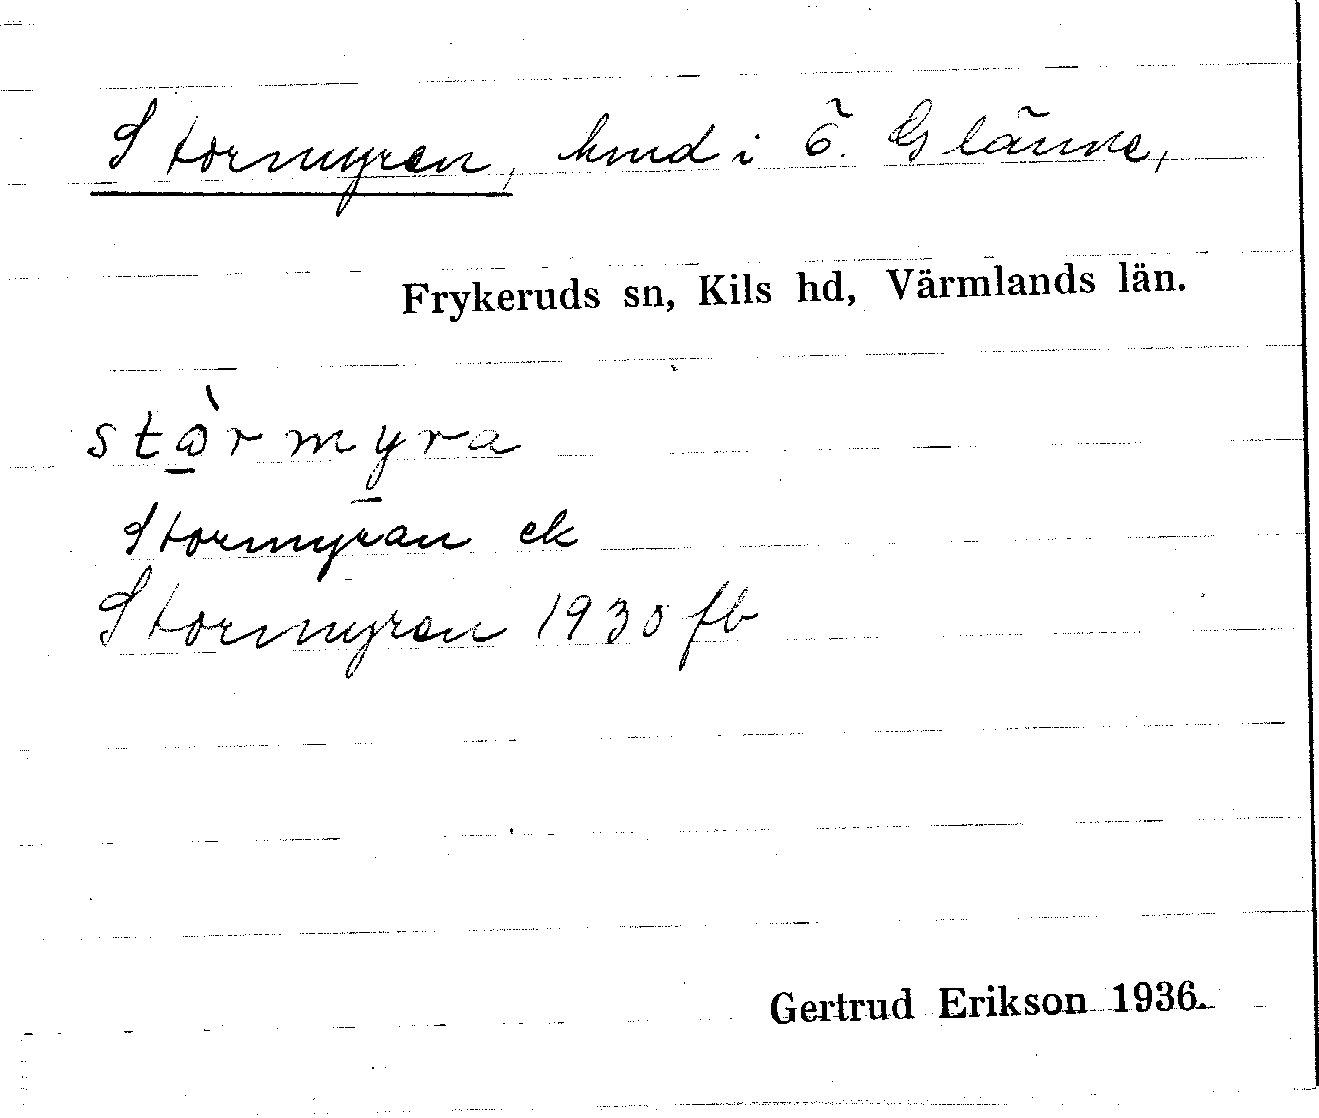 Stormyren, hmd i Ö. Glänne,
Frykeruds sn, Kils hd, Värmlands län.
Stormyran ek
Stormyren 1930 fb
Gertrud Erikson 1936.